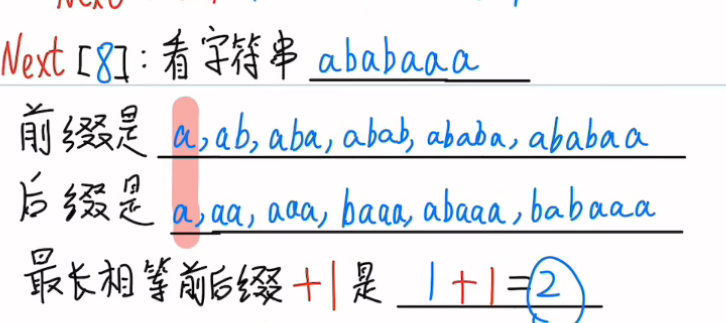 Next[8]:看字符串 ababaaa
前缀是 a,ab,aba,abab,ababa,ababaa
后缀是 a,aa,aaa,baaa,abaaa,babaaa
最长相等前后缀+1是 1+1=2